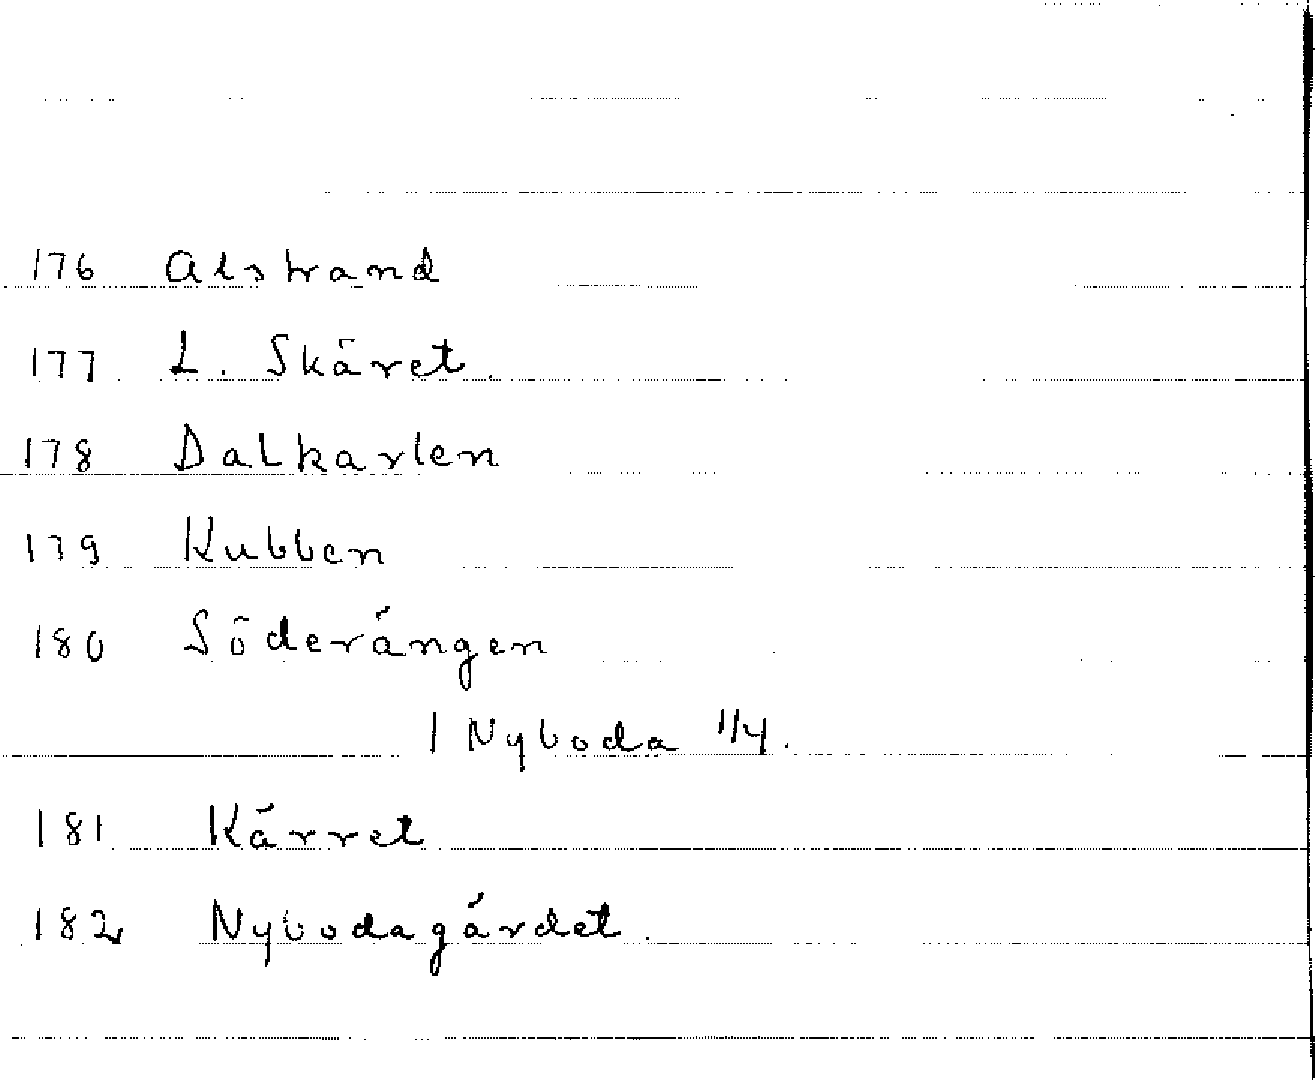 176 Alstrand
177 L. Skäret.
178 Dalkarlen
179 Kubben
180 Söderängen
1 Nyboda 1/4.
181 Kärret
182 Nybodagärdet.